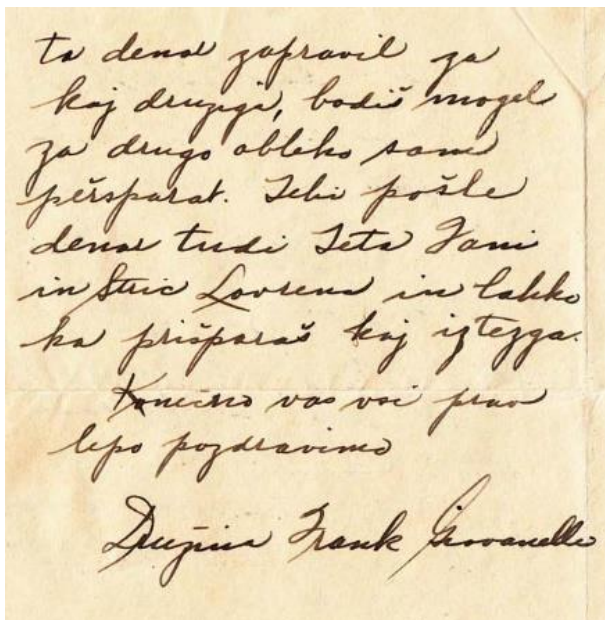 ta denar zapravil za
kaj druzga, bodiš mogel
za drugo obleko sam
peršparat. Tebi pošle
denar tudi Teta Fani
in Stric Lovrenc in lahko
ka prišparaš kaj iz tezga.
Konečno vas vsi prav
lepo pozdravimo
Družina Frank Giovanelli